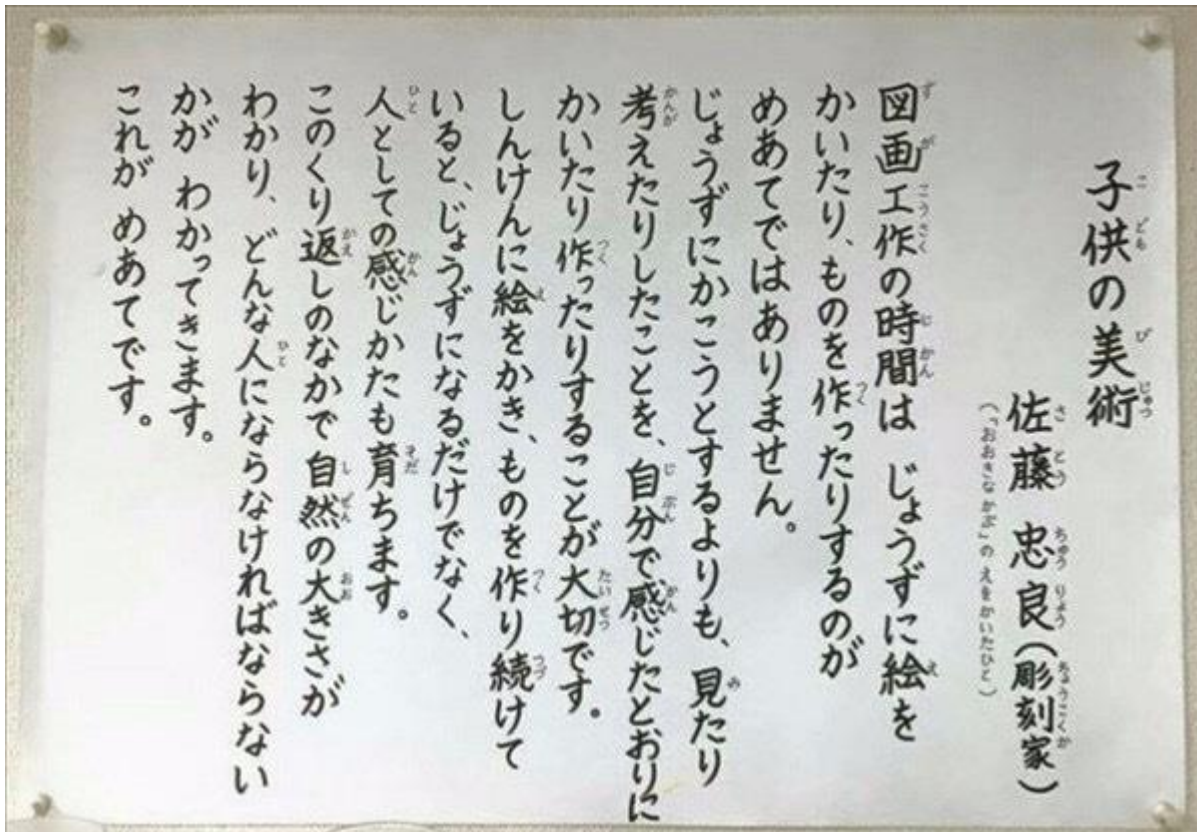 子供の美術
佐藤 忠良(彫刻家)
(「おおきなかぶ」のえをかいたひと)
図画工作の時間は じょうずに絵を
かいたり、ものを作ったりするのが
めあてではありません。
じょうずにかこうとするよりも、見たり
考えたりしたことを、自分で感じたとおりに
かいたり作ったりすることが大切です。
しんけんに絵をかき、ものを作り続けて
いると、じょうずになるだけでなく、
人としての感じかたも育ちます。
このくり返しのなかで 自然の大きさが
わかり、どんな人にならなければならない
かが わかってきます。
これが めあてです。